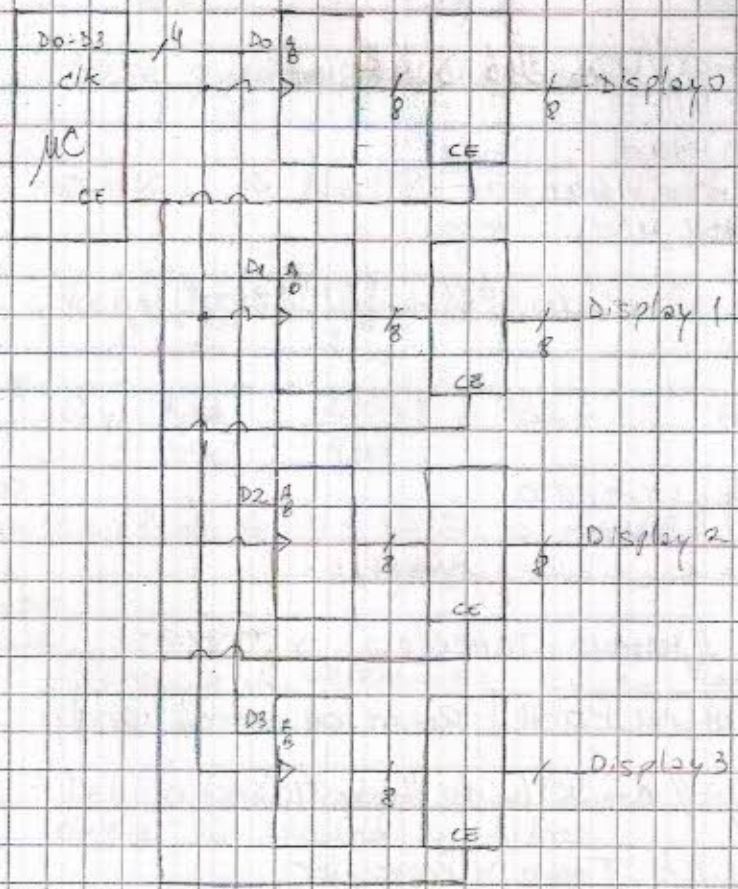 D0-D3 4 D0 A
B
clk 8 8 Display 0
μC
CE
CE
D1 A
B
8 8 Display 1
CE
D2 A
B
8 8 Display 2
CE
D3 A
B
8 Display 3
CE